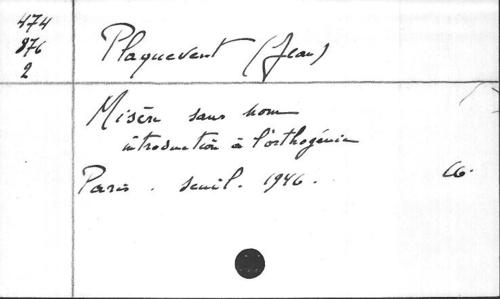 474
876
2
Plaquevent (Jean)
Misère sans nom
introduction à l'orthogénie
Paris. Seuil. 1946.